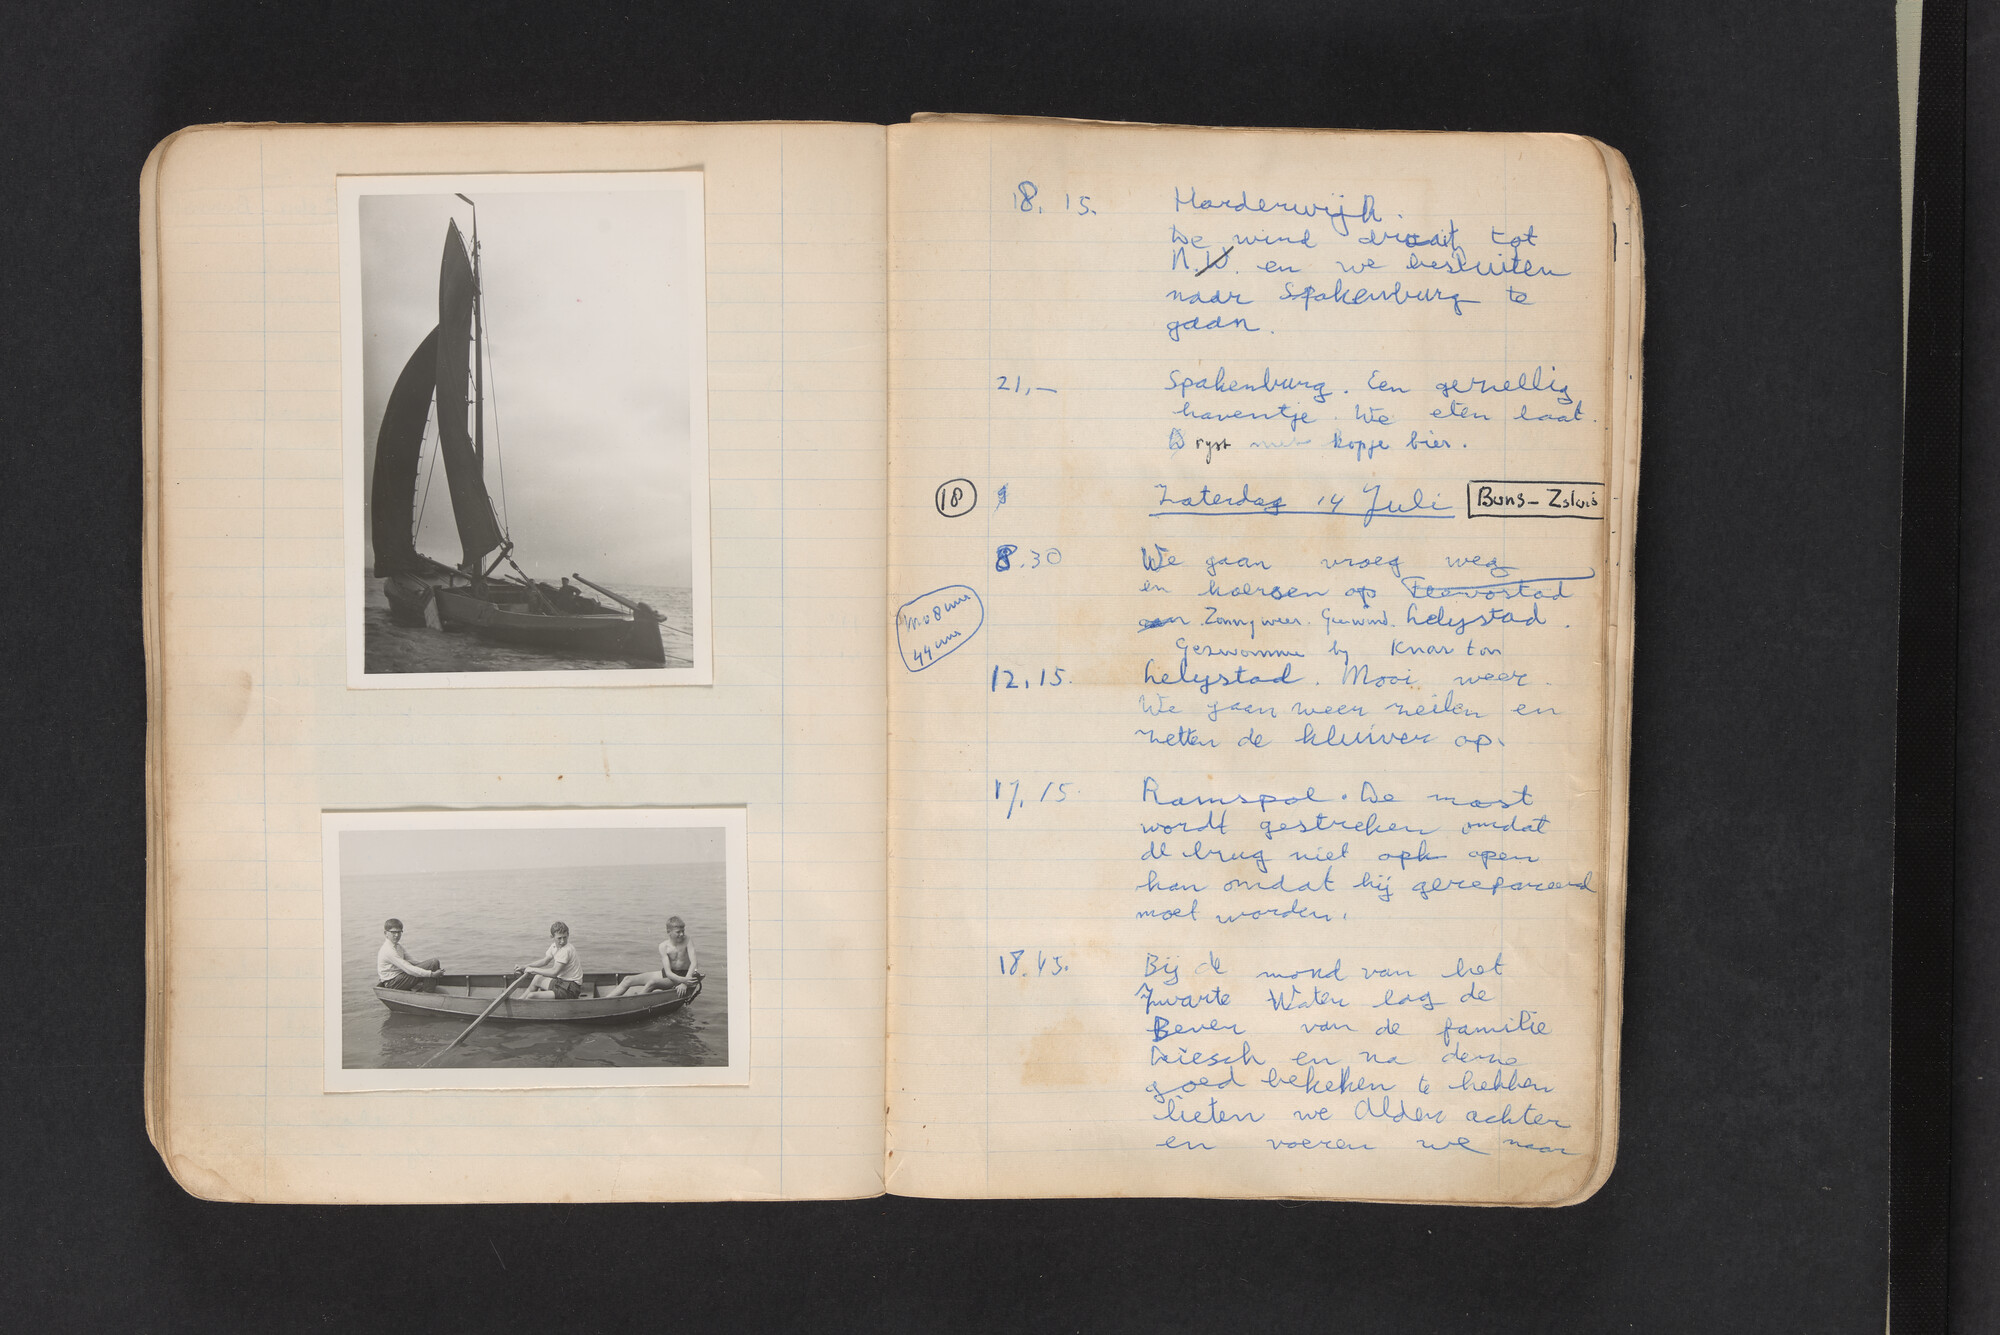 18.15. Harderwijk.
De wind draait tot
N.W. en we besluiten
naar Spakenburg te
gaan.
21,— Spakenburg. Een gezellig
haventje. We eten laat.
ryst met kopje bier.
18 Zaterdag 14 Juli Buns-Zsluis
8.30 We gaan vroeg weg
en koersen op Flevostad
Zonnig weer. Geen wind. Lelystad.
Mo 8 uur
44 uur
Gezwomme by Knar ton
12,15. Lelystad. Mooi weer.
We gaan weer zeilen en
zetten de kluiver op.
17,15. Ramspol. De mast
wordt gestreken omdat
de brug niet opk open
kan omdat hij gerepareerd
moet worden.
18.45. Bij de mond van het
Zwarte Water lag de
Bever van de familie
en na deze
goed bekeken te hebben
lieten we Alder achter
en voeren we naar